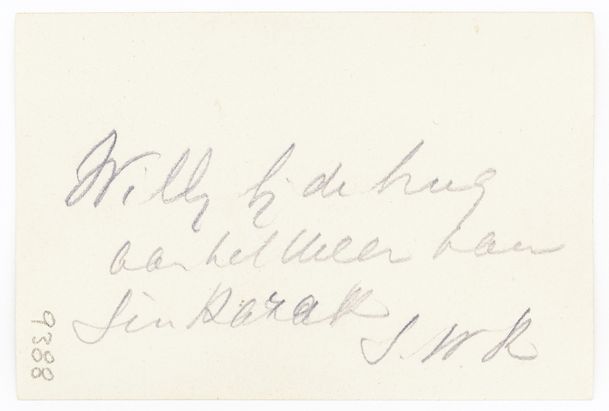 Willy bij de brug
aan het Meer van
Sinkarak
S. W. K
9388